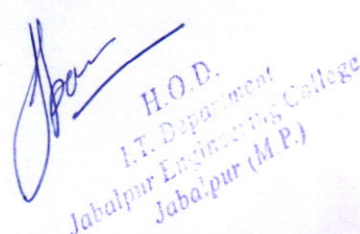 H.O.D.
I.T. Department
Jabalpur Engineering College
Jabalpur (M P.)